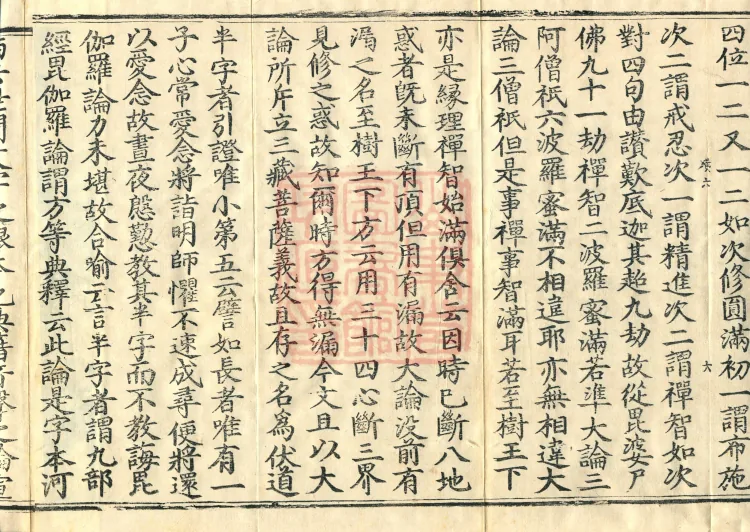 四位一二又一二如次修圓滿初一謂布施
次二謂戒忍次一謂精進次二謂禪智如次
對四句由讃歎底迦其超九劫故從毘婆尸
佛九十一劫禪智二波羅蜜滿若準大論三
阿僧祇六波羅蜜滿不相違耶亦無相違大
論三僧祇但是事禪事智滿耳若至樹王下
亦是縁理禪智始滿俱舍云因時已斷八地
惑者旣未斷有頂但用有漏故大論没前有
漏之名至樹王下方云用三十四心斷三界
見修之惑故知爾時方得無漏今文且以大
論所斥立三藏菩薩義故且存之名爲伏道
半字者引證唯小第五云譬如長者唯有一
子心常愛念將詣明師懼不速成尋便將還
以愛念故晝夜慇懃教其半字而不教誨毘
伽羅論力未堪故合喻云言半字者謂九部
經毘伽羅論謂方等典釋云此論是字本河
六